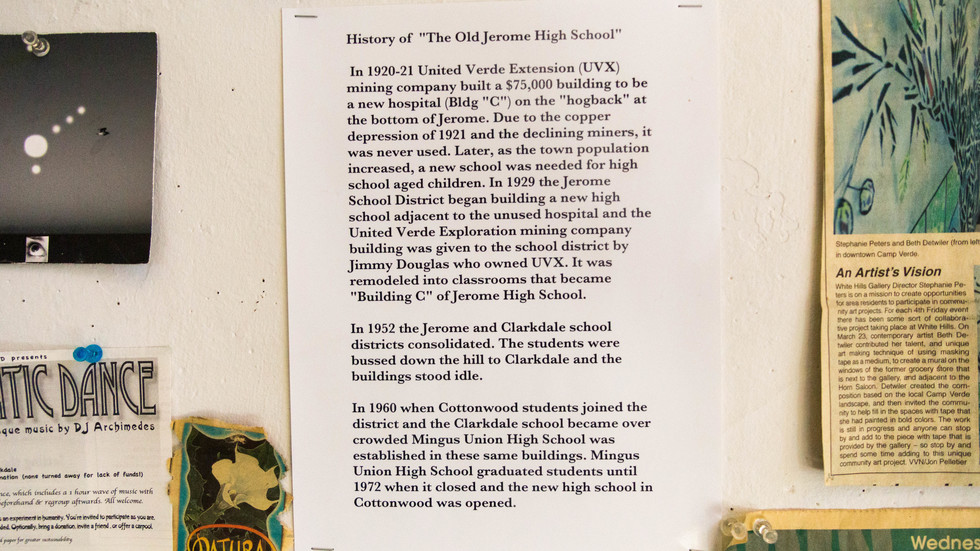 History of "The Old Jerome High School"
In 1920-21 United Verde Extension (UVX)
mining company built a $75,000 building to be
a new hospital (Bldg "C") on the "hogback" at
the bottom of Jerome. Due to the copper
depression of 1921 and the declining miners, it
was never used. Later, as the town population
increased, a new school was needed for high
school aged children. In 1929 the Jerome
School District began building a new high
school adjacent to the unused hospital and the
United Verde Exploration mining company
building was given to the school district by
Jimmy Douglas who owned UVX. It was
remodeled into classrooms that became
"Building C" of Jerome High School.
In 1952 the Jerome and Clarkdale school
districts consolidated. The students were
bussed down the hill to Clarkdale and the
buildings stood idle.
In 1960 when Cottonwood students joined the
district and the Clarkdale school became over
crowded Mingus Union High School was
established in these same buildings. Mingus
Union High School graduated students until
1972 when it closed and the new high school in
Cottonwood was opened.
presents
TIC DANCE
que music by DJ Archimedes
kdale
nation (none turned away for lack of funds!)
nce, which includes a 1 hour wave of music with
beforehand & regroup aftwards. All welcome.
is an experiment in humanity. You're invited to participate as you are.
ded. Optionally, bring a donation, invite a friend, or offer a carpool.
paper for greater sustainability.
DATURA
Stephanie Peters and Beth Detwiler (from left
in downtown Camp Verde.
An Artist's Vision
White Hills Gallery Director Stephanie Pe-
ters is on a mission to create opportunities
for area residents to participate in commu-
nity art projects. For each 4th Friday event
there has been some sort of collabora-
tive project taking place at White Hills. On
March 23, contemporary artist Beth De-
twiler contributed her talent, and unique
art making technique of using masking
tape as a medium, to create a mural on the
windows of the former grocery store that
is next to the gallery, and adjacent to the
Horn Saloon. Detwiler created the com-
position based on the local Camp Verde
landscape, and then invited the commu-
nity to help fill in the spaces with tape that
she had painted in bold colors. The work
is still in progress and anyone can stop
by and add to the piece with tape that is
provided by the gallery – so stop by and
spend some time adding to this unique
community art project. VVN/Jon Pelletier
Wednes